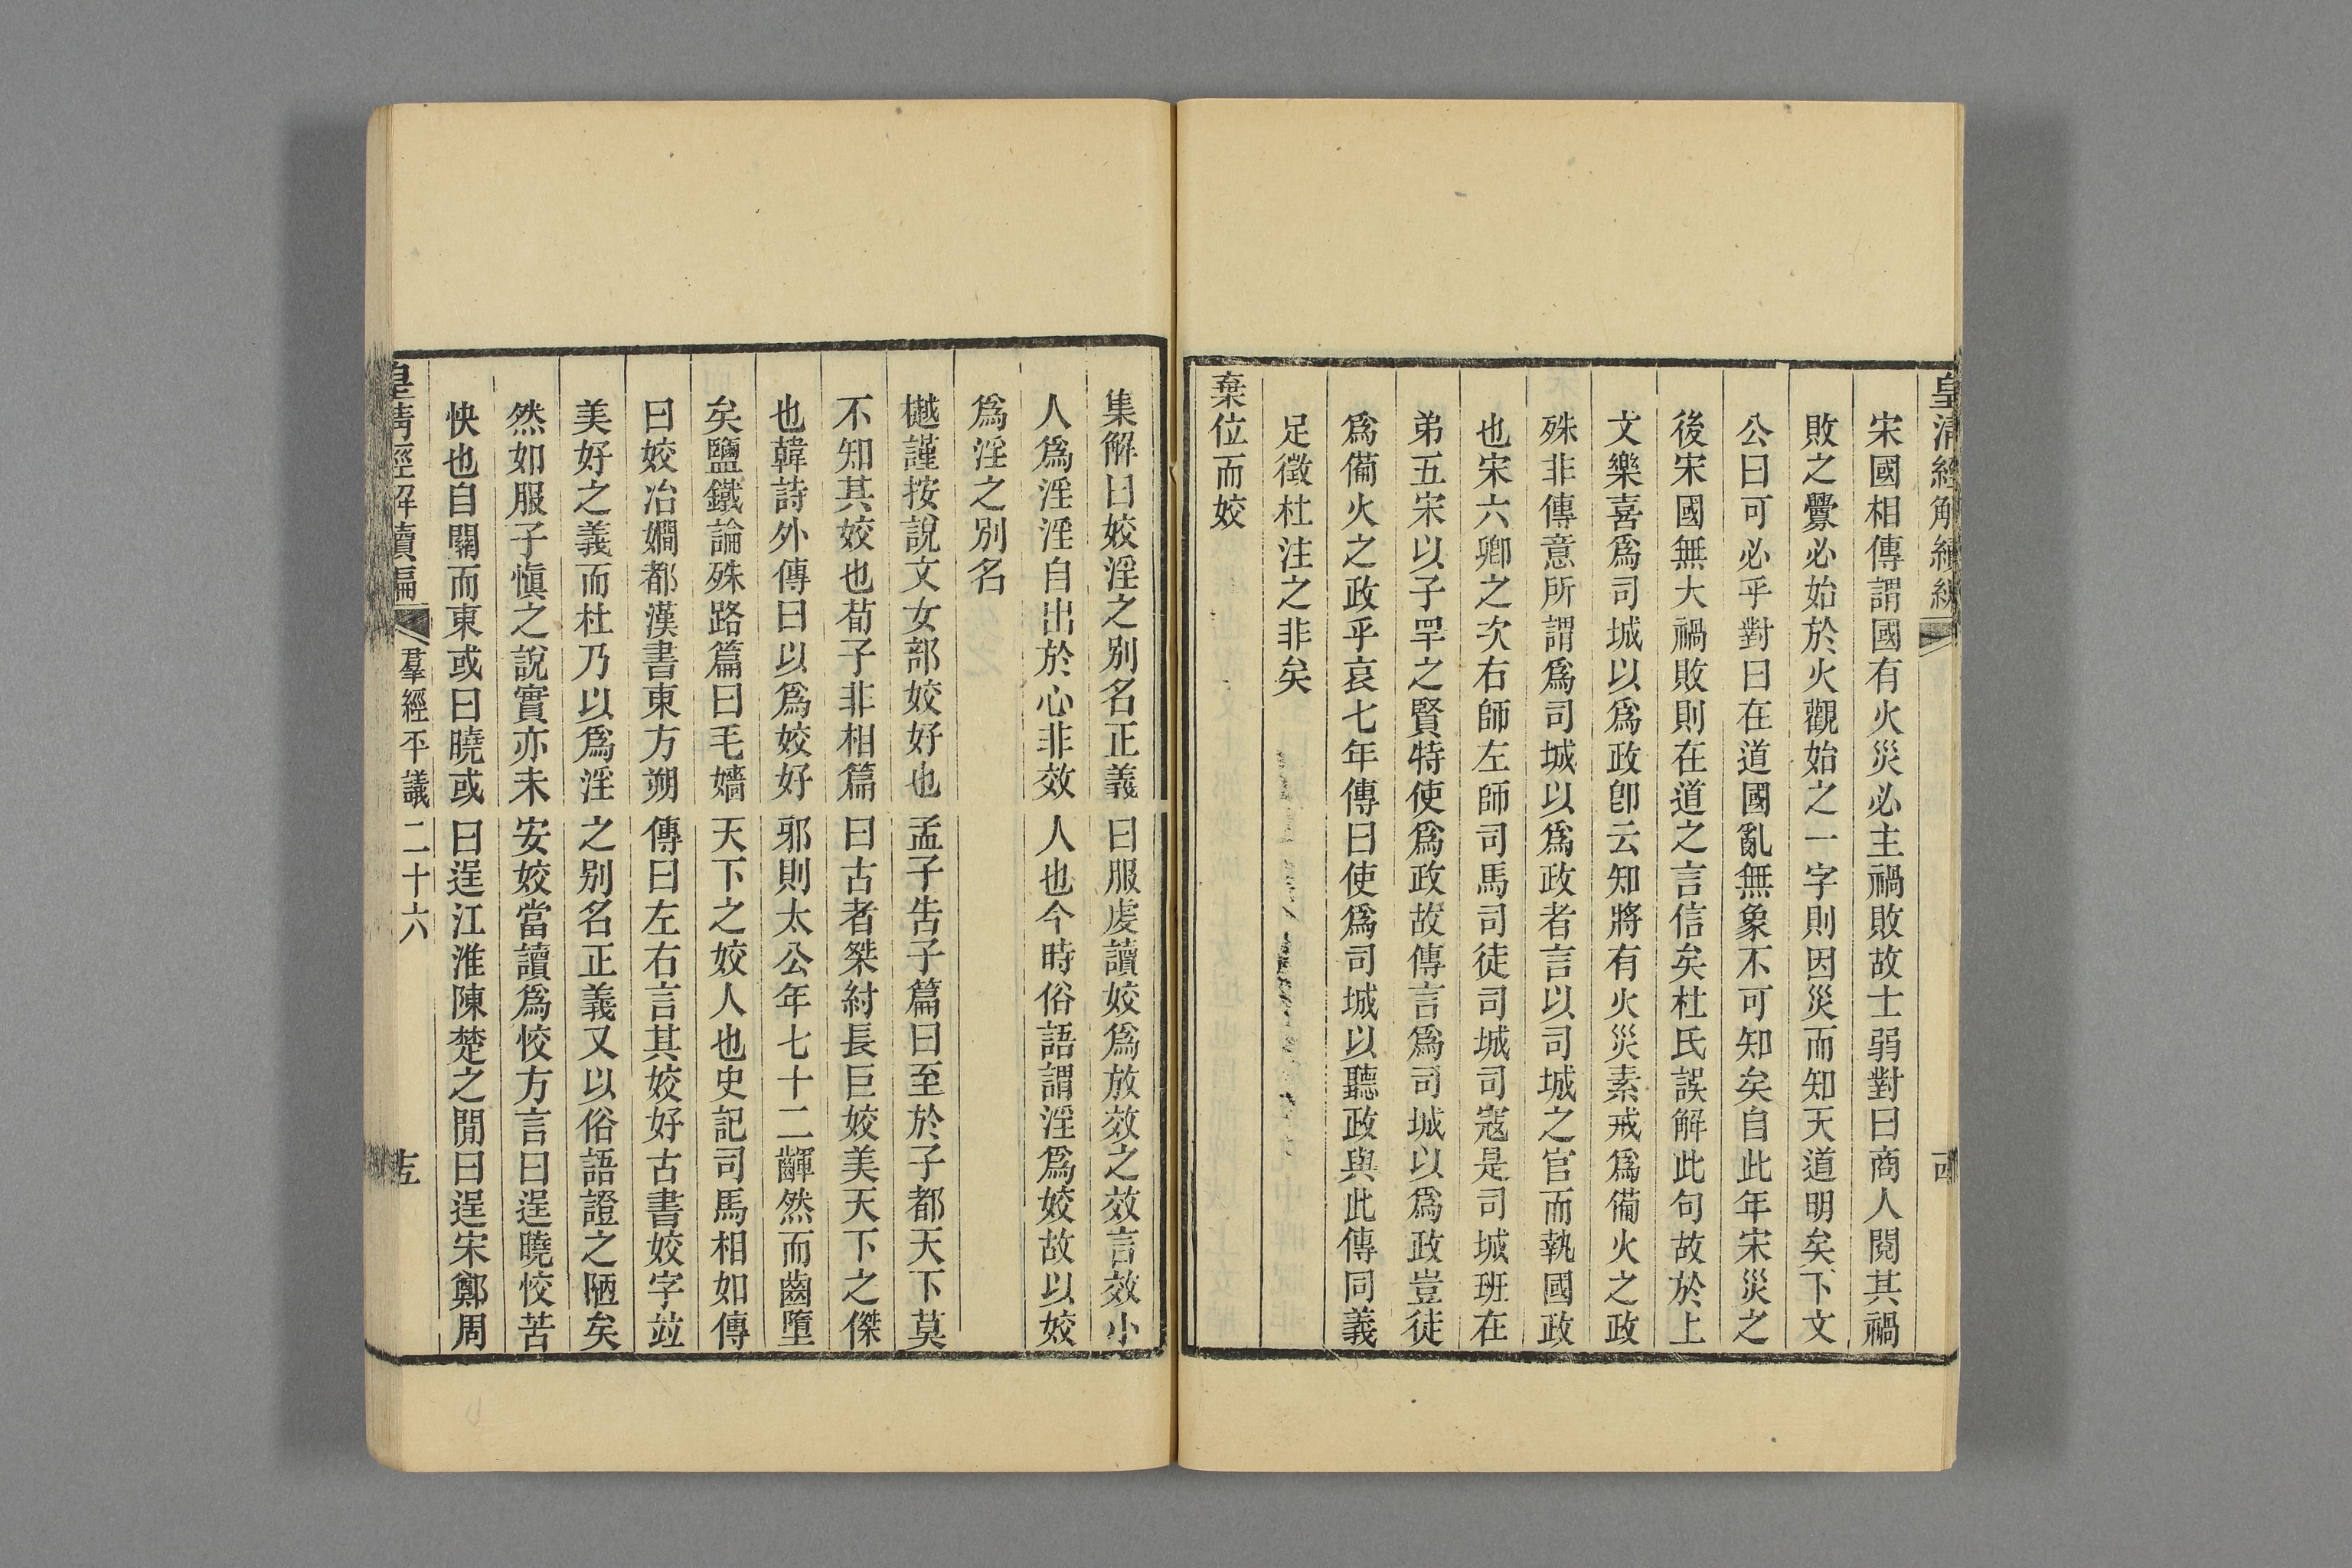 皇清經解續編
宋國相傳謂國有火災必主禍敗故士弱對曰商人閱其禍
敗之釁必始於火觀始之一字則因災而知天道明矣下文
公曰可必乎對曰在道國亂無象不可知矣自此年宋災之
後宋國無大禍敗則在道之言信矣杜氏誤解此句故於上
文樂喜爲司城以爲政卽云知將有火災素戒爲備火之政
殊非傳意所謂爲司城以爲政者言以司城之官而執國政
也宋六卿之次右師左師司馬司徒司城司寇是司城班在
弟五宋以子罕之賢特使爲政故傳言爲司城以爲政豈徒
爲備火之政乎哀七年傳曰使爲司城以聽政與此傳同義
足徵杜注之非矣
棄位而姣
集解曰姣淫之別名正義曰服虔讀姣爲放效之效言效小
人爲淫淫自出於心非效人也今時俗語謂淫爲姣故以姣
爲淫之別名
樾謹按說文女部姣好也孟子告子篇曰至於子都天下莫
不知其姣也荀子非相篇曰古者桀紂長巨姣美天下之傑
也韓詩外傳曰以爲姣好邪則太公年七十二齳然而齒墮
矣鹽鐵論殊路篇曰毛嬙天下之姣人也史記司馬相如傳
曰姣冶嫺都漢書東方朔傳曰左右言其姣好古書姣字竝
美好之義而杜乃以爲淫之別名正義又以俗語證之陋矣
然如服子愼之說實亦未安姣當讀爲恔方言曰逞曉恔苦
快也自關而東或曰曉或曰逞江淮陳楚之閒曰逞宋鄭周
皇清經解續編 羣經平議二十六